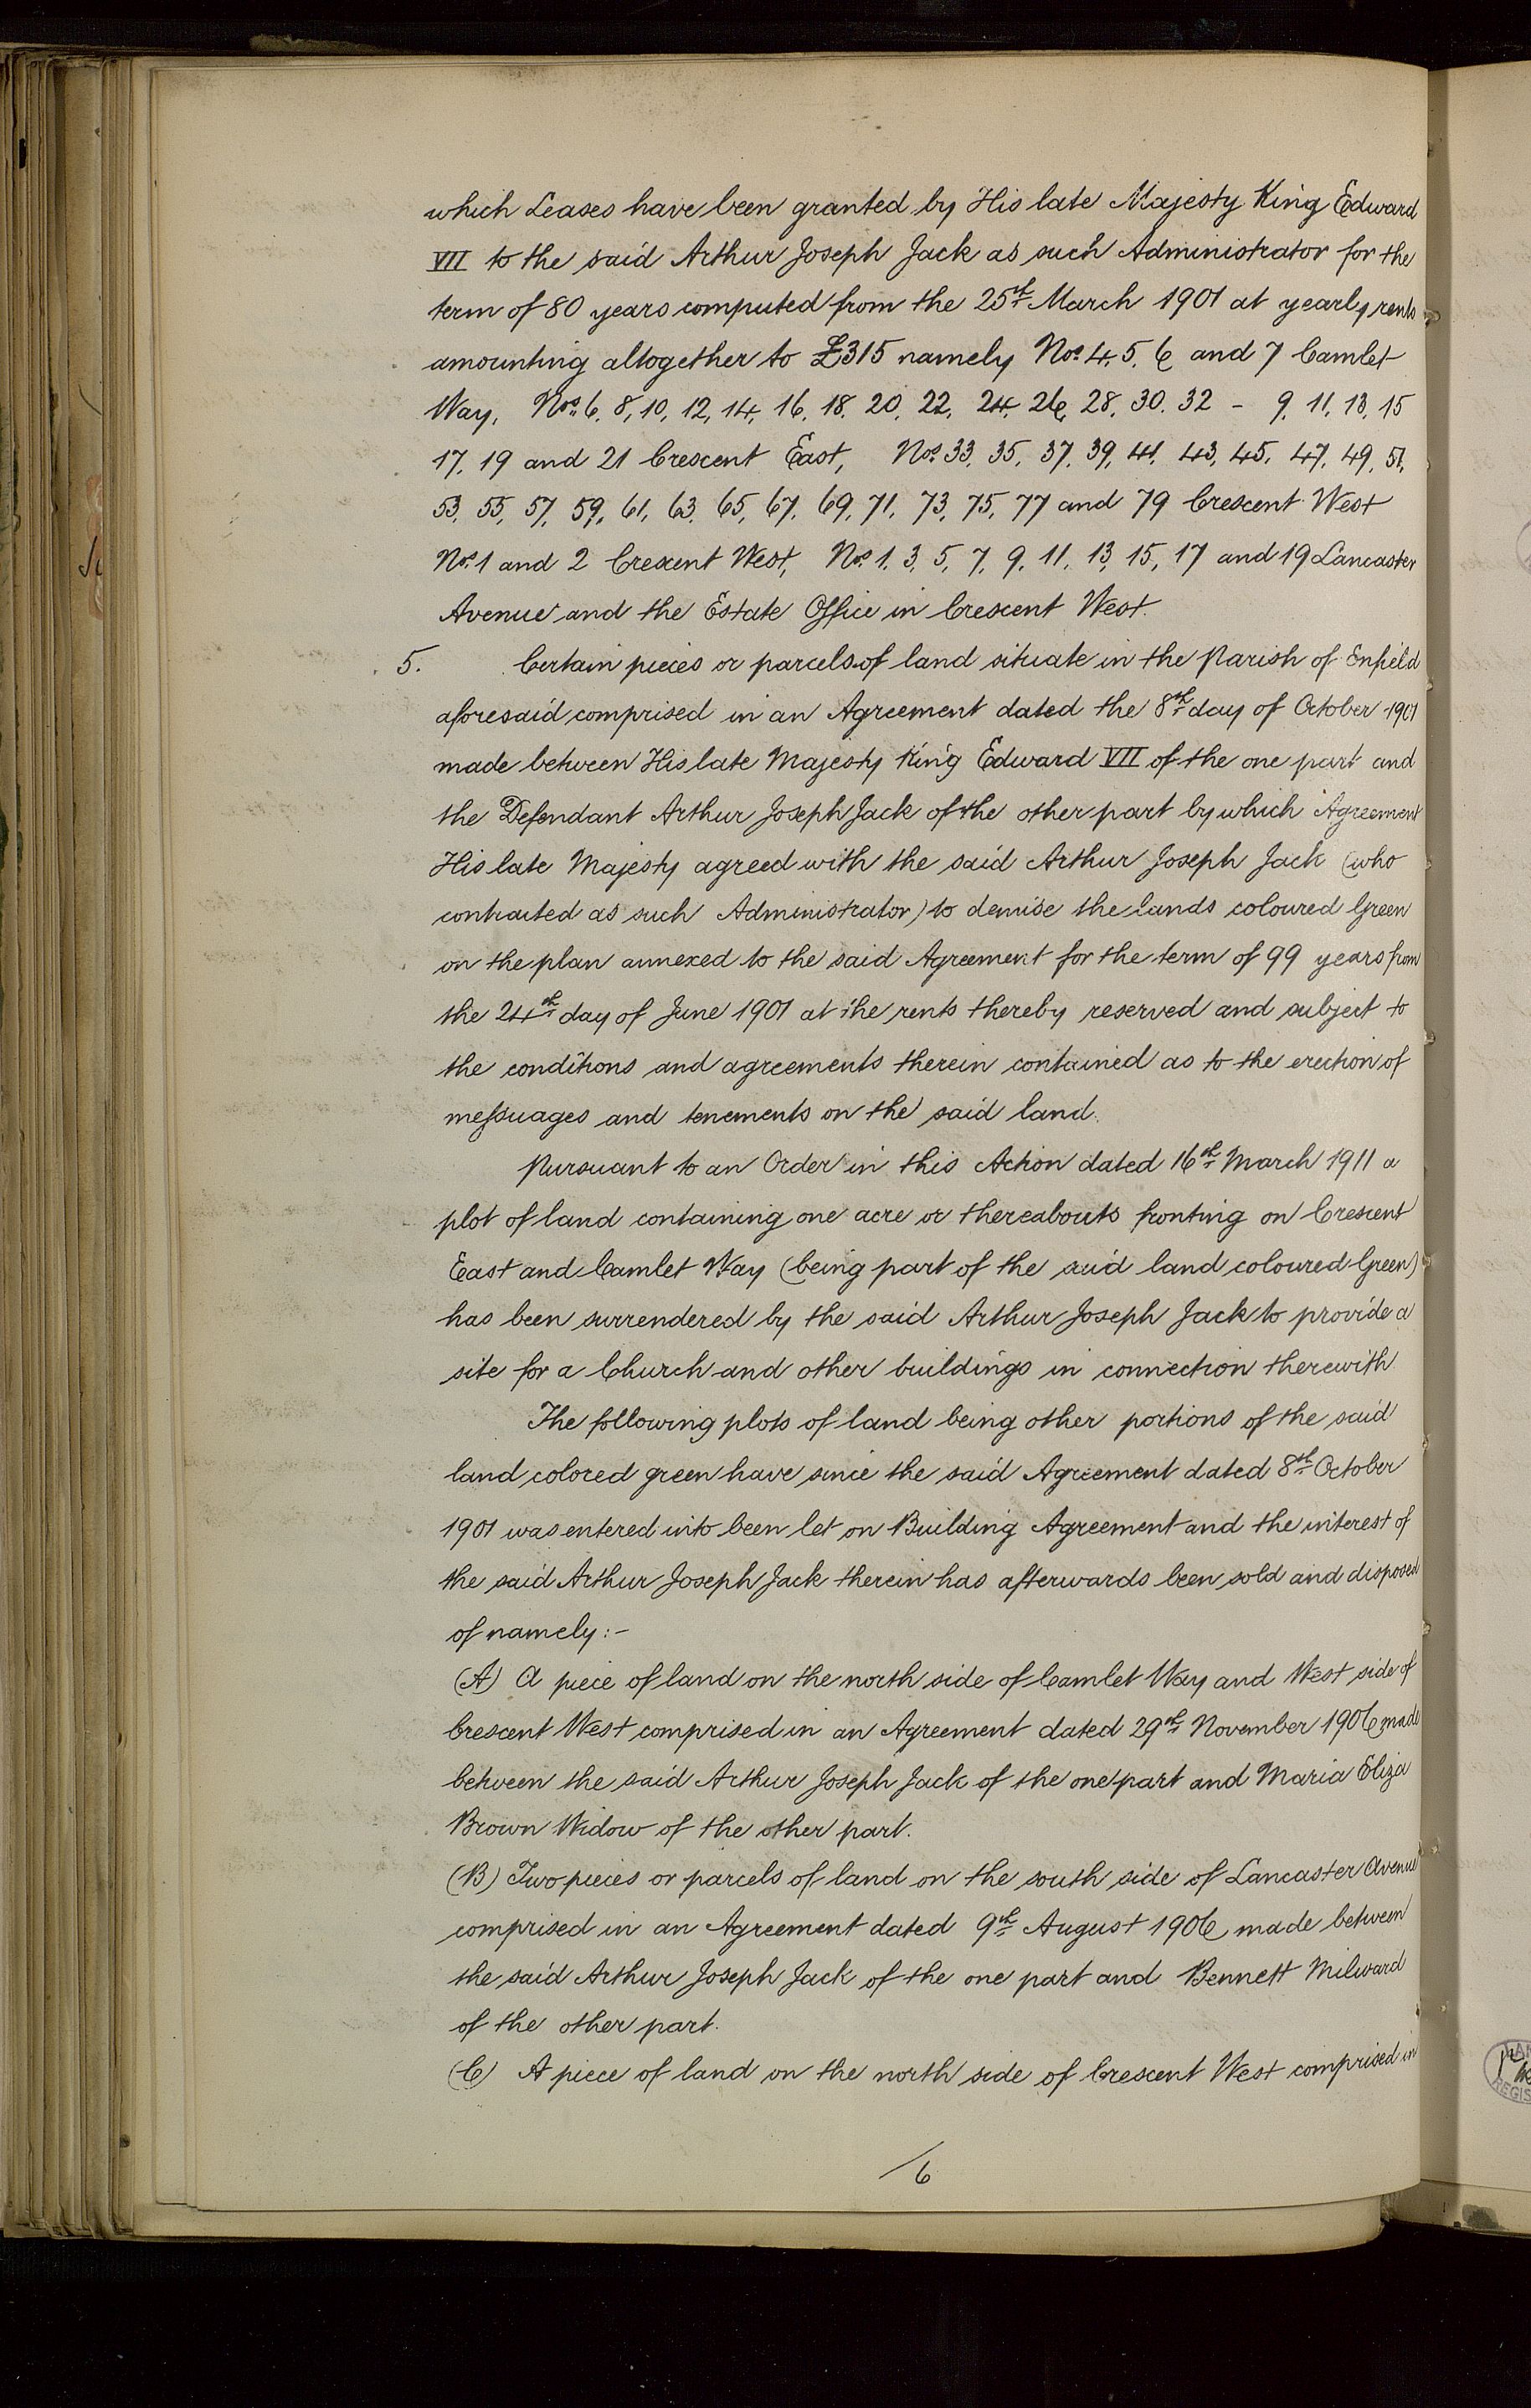 which Leases have been granted by His late Majesty King Edward
VII to the said Arthur Joseph Jack as such Administrator for the
term of 80 years computed from the 25th March 1901 at yearly rents
amounting altogether to £315 namely Nos. 4. 5. 6 and 7 Camlet
Way, Nos. 6. 8, 10, 12, 14, 16, 18. 20, 22, 24. 26, 28, 30. 32 - 9. 11. 13. 15
17, 19 and 21 Crescent East, Nos. 33, 35, 37, 39, 41, 43, 45, 47, 49, 51,
53, 55, 57, 59, 61, 63, 65, 67, 69, 71, 73, 75, 77 and 79 Crescent West
Nos. 1 and 2 Crescent West, Nos. 1. 3, 5, 7, 9. 11. 13, 15, 17 and 19 Lancaster
Avenue and the Estate Office in Crescent West.
5. Certain pieces or parcels of land situate in the Parish of Enfield
aforesaid comprised in an Agreement dated the 8th day of October 1901
made between His late Majesty King Edward VII of the one part and
the Defendant Arthur Joseph Jack of the other part by which Agreement
His late Majesty agreed with the said Arthur Joseph Jack (who
contracted as such Administrator) to demise the lands coloured Green
on the plan annexed to the said Agreement for the term of 99 years from
the 24th day of June 1901 at the rents thereby reserved and subject to
the conditions and agreements therein contained as to the erection of
meſsuages and tenements on the said land.
Pursuant to an Order in this Action dated 16th March 1911 a
plot of land containing one acre or thereabouts fronting on Crescent
East and Camlet Way (being part of the said land coloured Green)
has been surrendered by the said Arthur Joseph Jack to provide a
site for a Church and other buildings in connection therewith
The following plots of land being other portions of the said
land colored green have since the said Agreement dated 8th October
1901 was entered into been let on Building Agreement and the interest of
the said Arthur Joseph Jack therein has afterwards been sold and disposed
of namely:-
(A) A piece of land on the north side of Camlet Way and West side of
Crescent West comprised in an Agreement dated 29th November 1906 made
between the said Arthur Joseph Jack of the one part and Maria Eliza
Brown Widow of the other part.
(B) Two pieces or parcels of land on the south side of Lancaster Avenue
comprised in an Agreement dated 9th August 1906 made between
the said Arthur Joseph Jack of the one part and Bennett Milward
of the other part.
(C) A piece of land on the north side of Crescent West comprised in
6